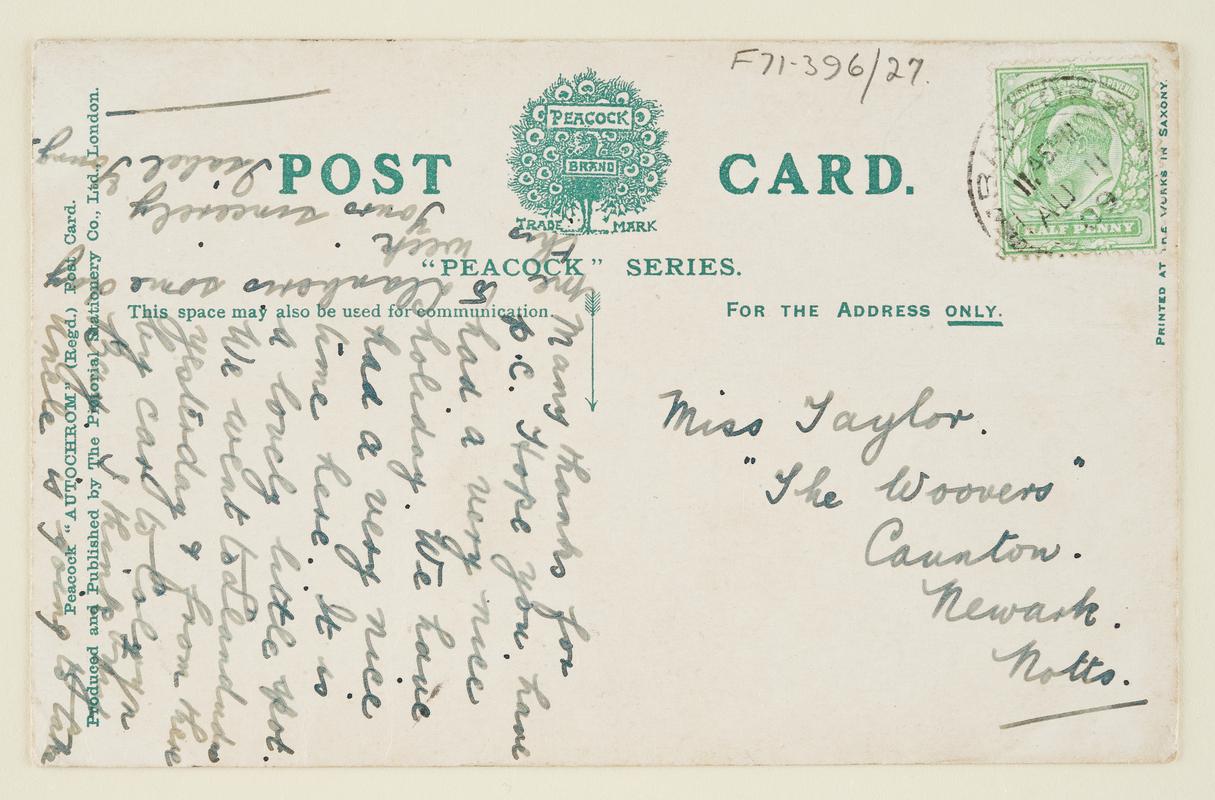 F71-396/27.
POST CARD.
PEACOCK
BRAND
TRADE MARK
"PEACOCK" SERIES.
This space may also be used for communication.
FOR THE ADDRESS ONLY.
HALF PENNY
11.45
AU 11
09
PRINTED AT THE WORKS IN SAXONY.
Miss Taylor.
"The Woovers"
Caunton.
Newark.
Notts.
Many thanks for
p.c. Hope you have
had a very nice
holiday. We have
had a very nice
time here. It is
a lovely little spot.
We went to Llandudno
yesterday & from there
by car to Colwyn
Bay. I think
Uncle is going to take
me to Llanberis some day
this week
Yours sincerely
Isabel
Peacock "AUTOCHROM" (Regd.) Post Card.
Produced and Published by The Pictorial Stationery Co., Ltd., London.